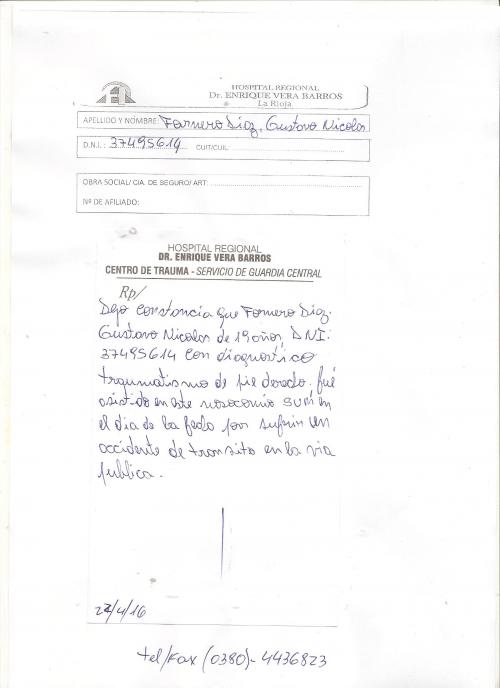 HOSPITAL REGIONAL
Dr. ENRIQUE VERA BARROS
La Rioja
APELLIDO Y NOMBRE: Fornero Díaz, Gustavo Nicolas
D.N.I.: 37495614 CUIT/CUIL:
OBRA SOCIAL/ CIA. DE SEGURO/ ART:
Nº DE AFILIADO:
HOSPITAL REGIONAL
DR. ENRIQUE VERA BARROS
CENTRO DE TRAUMA - SERVICIO DE GUARDIA CENTRAL
Rp/
Dejo constancia que Fornero Díaz.
Gustavo Nicolas de 19 años, DNI:
37495614 con diagnostico
traumatismo de pie derecho. fué
asistido en este nosocomio en
el dia de la fecha por sufrir un
accidente de transito en la via
publica.
/4/16
tel/Fax (0380)- 4436823